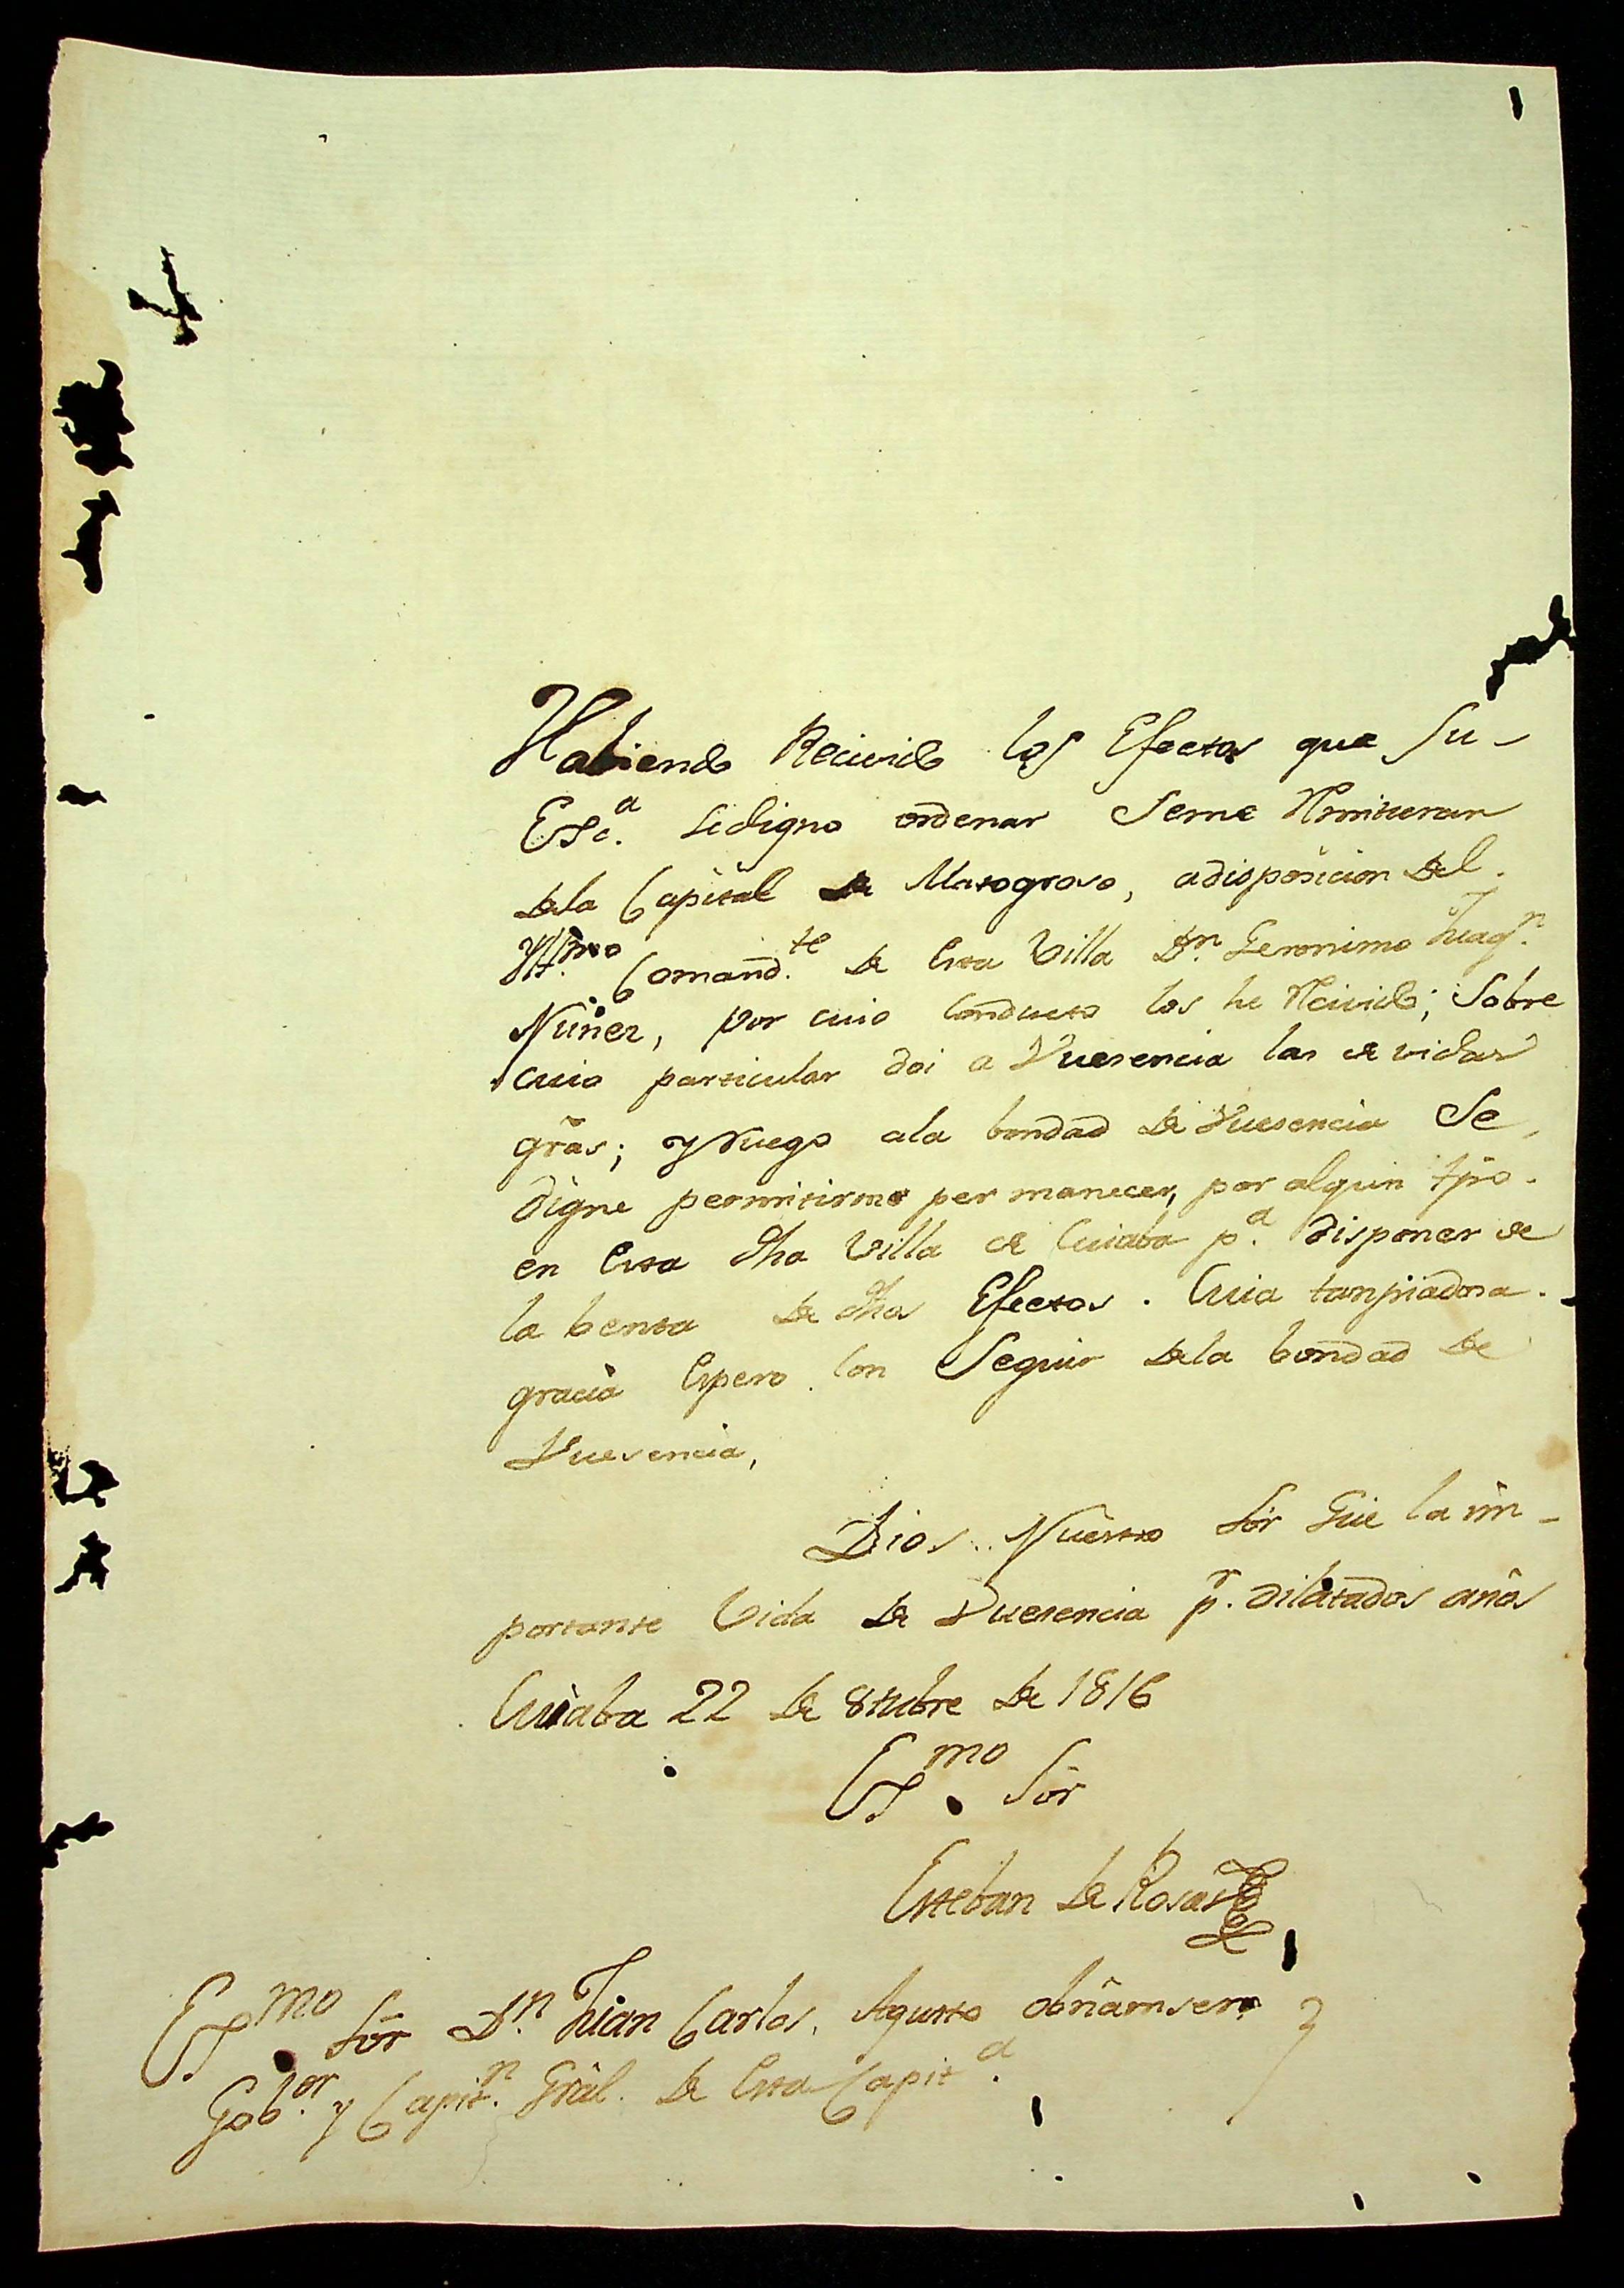 Habiendo Recivido los Efectos que Su-
Exc.ª sedigno ordenar Seme Rmitieran
dela Capital de Matogroso, adisposicion del.
Yll.mo Comand.te de Esta Villa Dn. Geronimo Juaqn.
Nuñez, por cuio Conducto los he Recivido; Sobre
cuio particular doi a Vuesencia las devidas
grãs; y ruego ala bondad de Vuesencia Se
digne permitirme permanecer, por algun tpo.
en Esta dha Villa de Cuiaba p.ª disponer de
la benta de dhos Efectos. Cuia tanpiadosa.
gracia Espero Con Seguir dela bondad de
Vuesencia,
Dios Nuestro Sor Gũe la im-
portante Vida de Vuesencia pr. dilatados años
Cuiaba 22 de 8tubre de 1816
Ex.mo Sor
Esteban de Rosas
Ex.mo Sor Dn. Juan Carlos Agusto
Gob.or y Capitn. Gral. de Esta Capit.ª